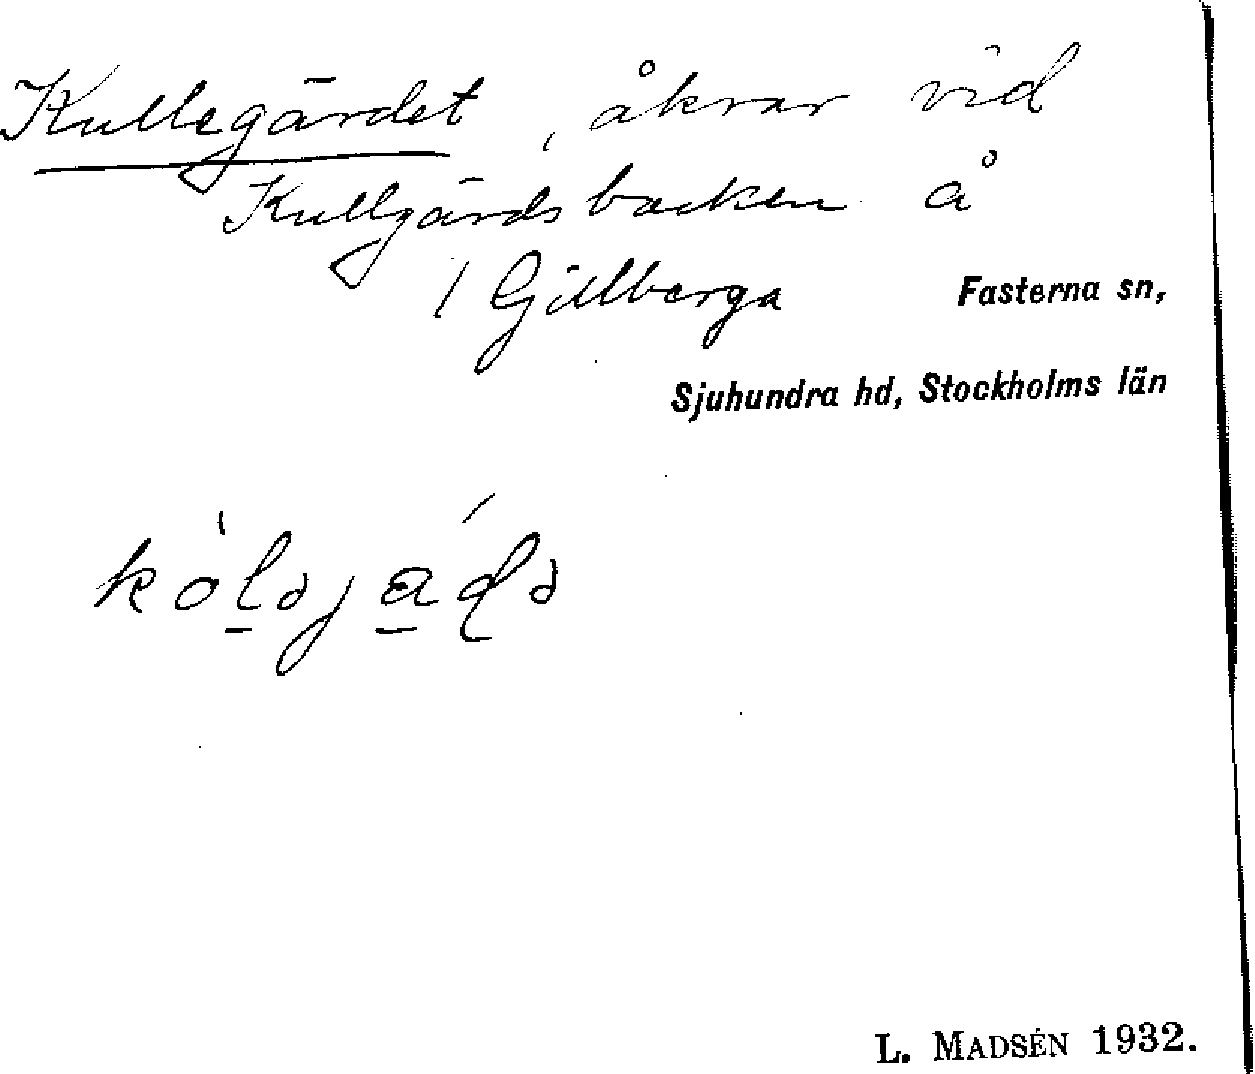 Kullegärdet, åkrar vid
Kullgärdsbacken å
/ Gillberga
Fasterna sn,
Sjuhundra hd, Stockholms län
L. MADSÉN 1932.